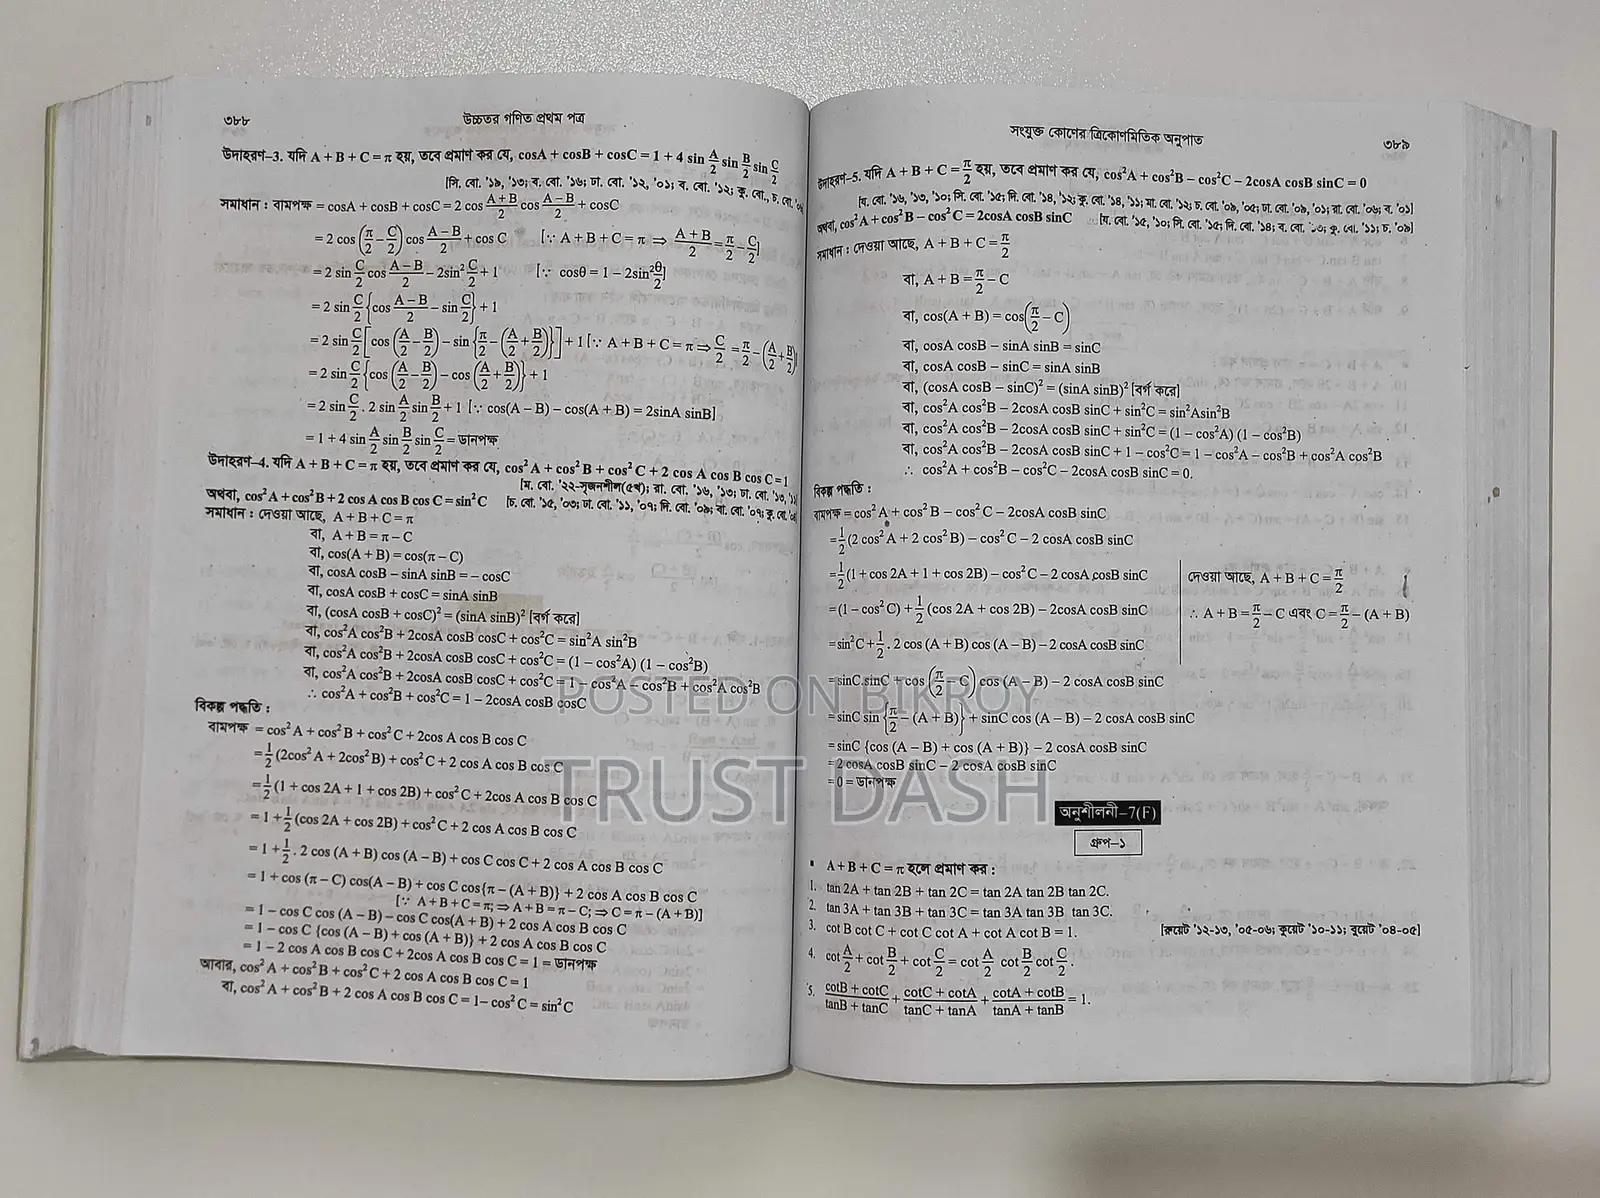 ৩৮৮
উচ্চতর গণিত প্রথম পত্র
উদাহরণ–3. যদি A + B + C = π হয়, তবে প্রমাণ কর যে, cosA + cosB + cosC = 1 + 4 sin A/2 sin B/2 sin C/2
[সি. বো. '১৯, '১৩; ব. বো. '১৬; ঢা. বো. '১২, '০১; ব. বো. '১২; কু. বো., চ. বো.
সমাধান : বামপক্ষ = cosA + cosB + cosC = 2 cos (A + B)/2 cos (A – B)/2 + cosC
= 2 cos (π/2 – C/2) cos (A – B)/2 + cos C [∵ A + B + C = π ⇒ (A + B)/2 = π/2 – C/2]
= 2 sin C/2 cos (A – B)/2 – 2sin² C/2 + 1 [∵ cosθ = 1 – 2sin² θ/2]
= 2 sin C/2 {cos (A – B)/2 – sin C/2} + 1
= 2 sin C/2 [cos (A/2 – B/2) – sin {π/2 – (A/2 + B/2)}] + 1 [∵ A + B + C = π ⇒ C/2 = π/2 – (A/2 + B/2)]
= 2 sin C/2 {cos (A/2 – B/2) – cos (A/2 + B/2)} + 1
= 2 sin C/2 . 2 sin A/2 sin B/2 + 1 [∵ cos(A – B) – cos(A + B) = 2sinA sinB]
= 1 + 4 sin A/2 sin B/2 sin C/2 = ডানপক্ষ
উদাহরণ–4. যদি A + B + C = π হয়, তবে প্রমাণ কর যে, cos² A + cos² B + cos² C + 2 cos A cos B cos C = 1
[ম. বো. '২২–সৃজনশীল(৫খ); রা. বো. '১৬, '১৩; ঢা. বো. '১৩,
অথবা, cos² A + cos² B + 2 cos A cos B cos C = sin² C [চ. বো. '১৫, '০৩; ঢা. বো. '১১, '০৭; দি. বো. '০৯; বো. '০৭; কু. বো.
সমাধান : দেওয়া আছে, A + B + C = π
বা, A + B = π – C
বা, cos(A + B) = cos(π – C)
বা, cosA cosB – sinA sinB = – cosC
বা, cosA cosB + cosC = sinA sinB
বা, (cosA cosB + cosC)² = (sinA sinB)² [বর্গ করে]
বা, cos²A cos²B + 2cosA cosB cosC + cos²C = sin²A sin²B
বা, cos²A cos²B + 2cosA cosB cosC + cos²C = (1 – cos²A) (1 – cos²B)
বা, cos²A cos²B + 2cosA cosB cosC + cos²C = 1 – cos²A – cos²B + cos²A cos²B
∴ cos²A + cos²B + cos²C = 1 – 2cosA cosB cosC
বিকল্প পদ্ধতি :
বামপক্ষ = cos² A + cos² B + cos² C + 2cos A cos B cos C
= 1/2 (2cos² A + 2cos² B) + cos² C + 2 cos A cos B cos C
= 1/2 (1 + cos 2A + 1 + cos 2B) + cos² C + 2cos A cos B cos C
= 1 + 1/2 (cos 2A + cos 2B) + cos² C + 2 cos A cos B cos C
= 1 + 1/2 . 2 cos (A + B) cos (A – B) + cos C cos C + 2 cos A cos B cos C
= 1 + cos (π – C) cos(A – B) + cos C cos{π – (A + B)} + 2 cos A cos B cos C
[∵ A + B + C = π; ⇒ A + B = π – C; ⇒ C = π – (A + B)]
= 1 – cos C cos (A – B) – cos C cos(A + B) + 2 cos A cos B cos C
= 1 – cos C {cos (A – B) + cos (A + B)} + 2 cos A cos B cos C
= 1 – 2 cos A cos B cos C + 2cos A cos B cos C = 1 = ডানপক্ষ
আবার, cos² A + cos² B + cos² C + 2 cos A cos B cos C = 1
বা, cos² A + cos² B + 2 cos A cos B cos C = 1– cos² C = sin² C
সংযুক্ত কোণের ত্রিকোণমিতিক অনুপাত
৩৮৯
উদাহরণ–5. যদি A + B + C = π/2 হয়, তবে প্রমাণ কর যে, cos²A + cos²B – cos²C – 2cosA cosB sinC = 0
[য. বো. '১৬, '১৩, '১০; সি. বো. '১৫; দি. বো. '১৪, '১২; কু. বো. '১৪, '১১; মা. বো. '১২; চ. বো. '০৯, '০৫; ঢা. বো. '০৯, '০১; রা. বো. '০৬; ব. '০১]
অথবা, cos² A + cos² B – cos² C = 2cosA cosB sinC [য. বো. '১৫, '১০; সি. বো. '১৫; দি. বো. '১৪; ব. বো. '১৩; কু. বো. '১১; চ. '০৯]
সমাধান : দেওয়া আছে, A + B + C = π/2
বা, A + B = π/2 – C
বা, cos(A + B) = cos(π/2 – C)
বা, cosA cosB – sinA sinB = sinC
বা, cosA cosB – sinC = sinA sinB
বা, (cosA cosB – sinC)² = (sinA sinB)² [বর্গ করে]
বা, cos²A cos²B – 2cosA cosB sinC + sin²C = sin²Asin²B
বা, cos²A cos²B – 2cosA cosB sinC + sin²C = (1 – cos²A) (1 – cos²B)
বা, cos²A cos²B – 2cosA cosB sinC + 1 – cos²C = 1 – cos²A – cos²B + cos²A cos²B
∴ cos²A + cos²B – cos²C – 2cosA cosB sinC = 0.
বিকল্প পদ্ধতি :
বামপক্ষ = cos² A + cos² B – cos² C – 2cosA cosB sinC
= 1/2 (2 cos² A + 2 cos² B) – cos² C – 2 cosA cosB sinC
= 1/2 (1 + cos 2A + 1 + cos 2B) – cos² C – 2 cosA cosB sinC
= (1 – cos² C) + 1/2 (cos 2A + cos 2B) – 2cosA cosB sinC
= sin²C + 1/2 . 2 cos (A + B) cos (A – B) – 2 cosA cosB sinC
= sinC.sinC + cos (π/2 – C) cos (A – B) – 2 cosA cosB sinC
= sinC sin {π/2 – (A + B)} + sinC cos (A – B) – 2 cosA cosB sinC
= sinC {cos (A – B) + cos (A + B)} – 2 cosA cosB sinC
= 2 cosA cosB sinC – 2 cosA cosB sinC
= 0 = ডানপক্ষ
দেওয়া আছে, A + B + C = π/2
∴ A + B = π/2 – C এবং C = π/2 – (A + B)
অনুশীলনী–7(F)
গ্রুপ–১
▪ A + B + C = π হলে প্রমাণ কর :
1. tan 2A + tan 2B + tan 2C = tan 2A tan 2B tan 2C.
2. tan 3A + tan 3B + tan 3C = tan 3A tan 3B tan 3C.
3. cot B cot C + cot C cot A + cot A cot B = 1. [রুয়েট '১২-১৩, '০৫-০৬; কুয়েট '১০-১১; বুয়েট '০৪-০৫]
4. cot A/2 + cot B/2 + cot C/2 = cot A/2 cot B/2 cot C/2 .
5. (cotB + cotC)/(tanB + tanC) + (cotC + cotA)/(tanC + tanA) + (cotA + cotB)/(tanA + tanB) = 1.
POSTED ON BIKROY
TRUST DASH